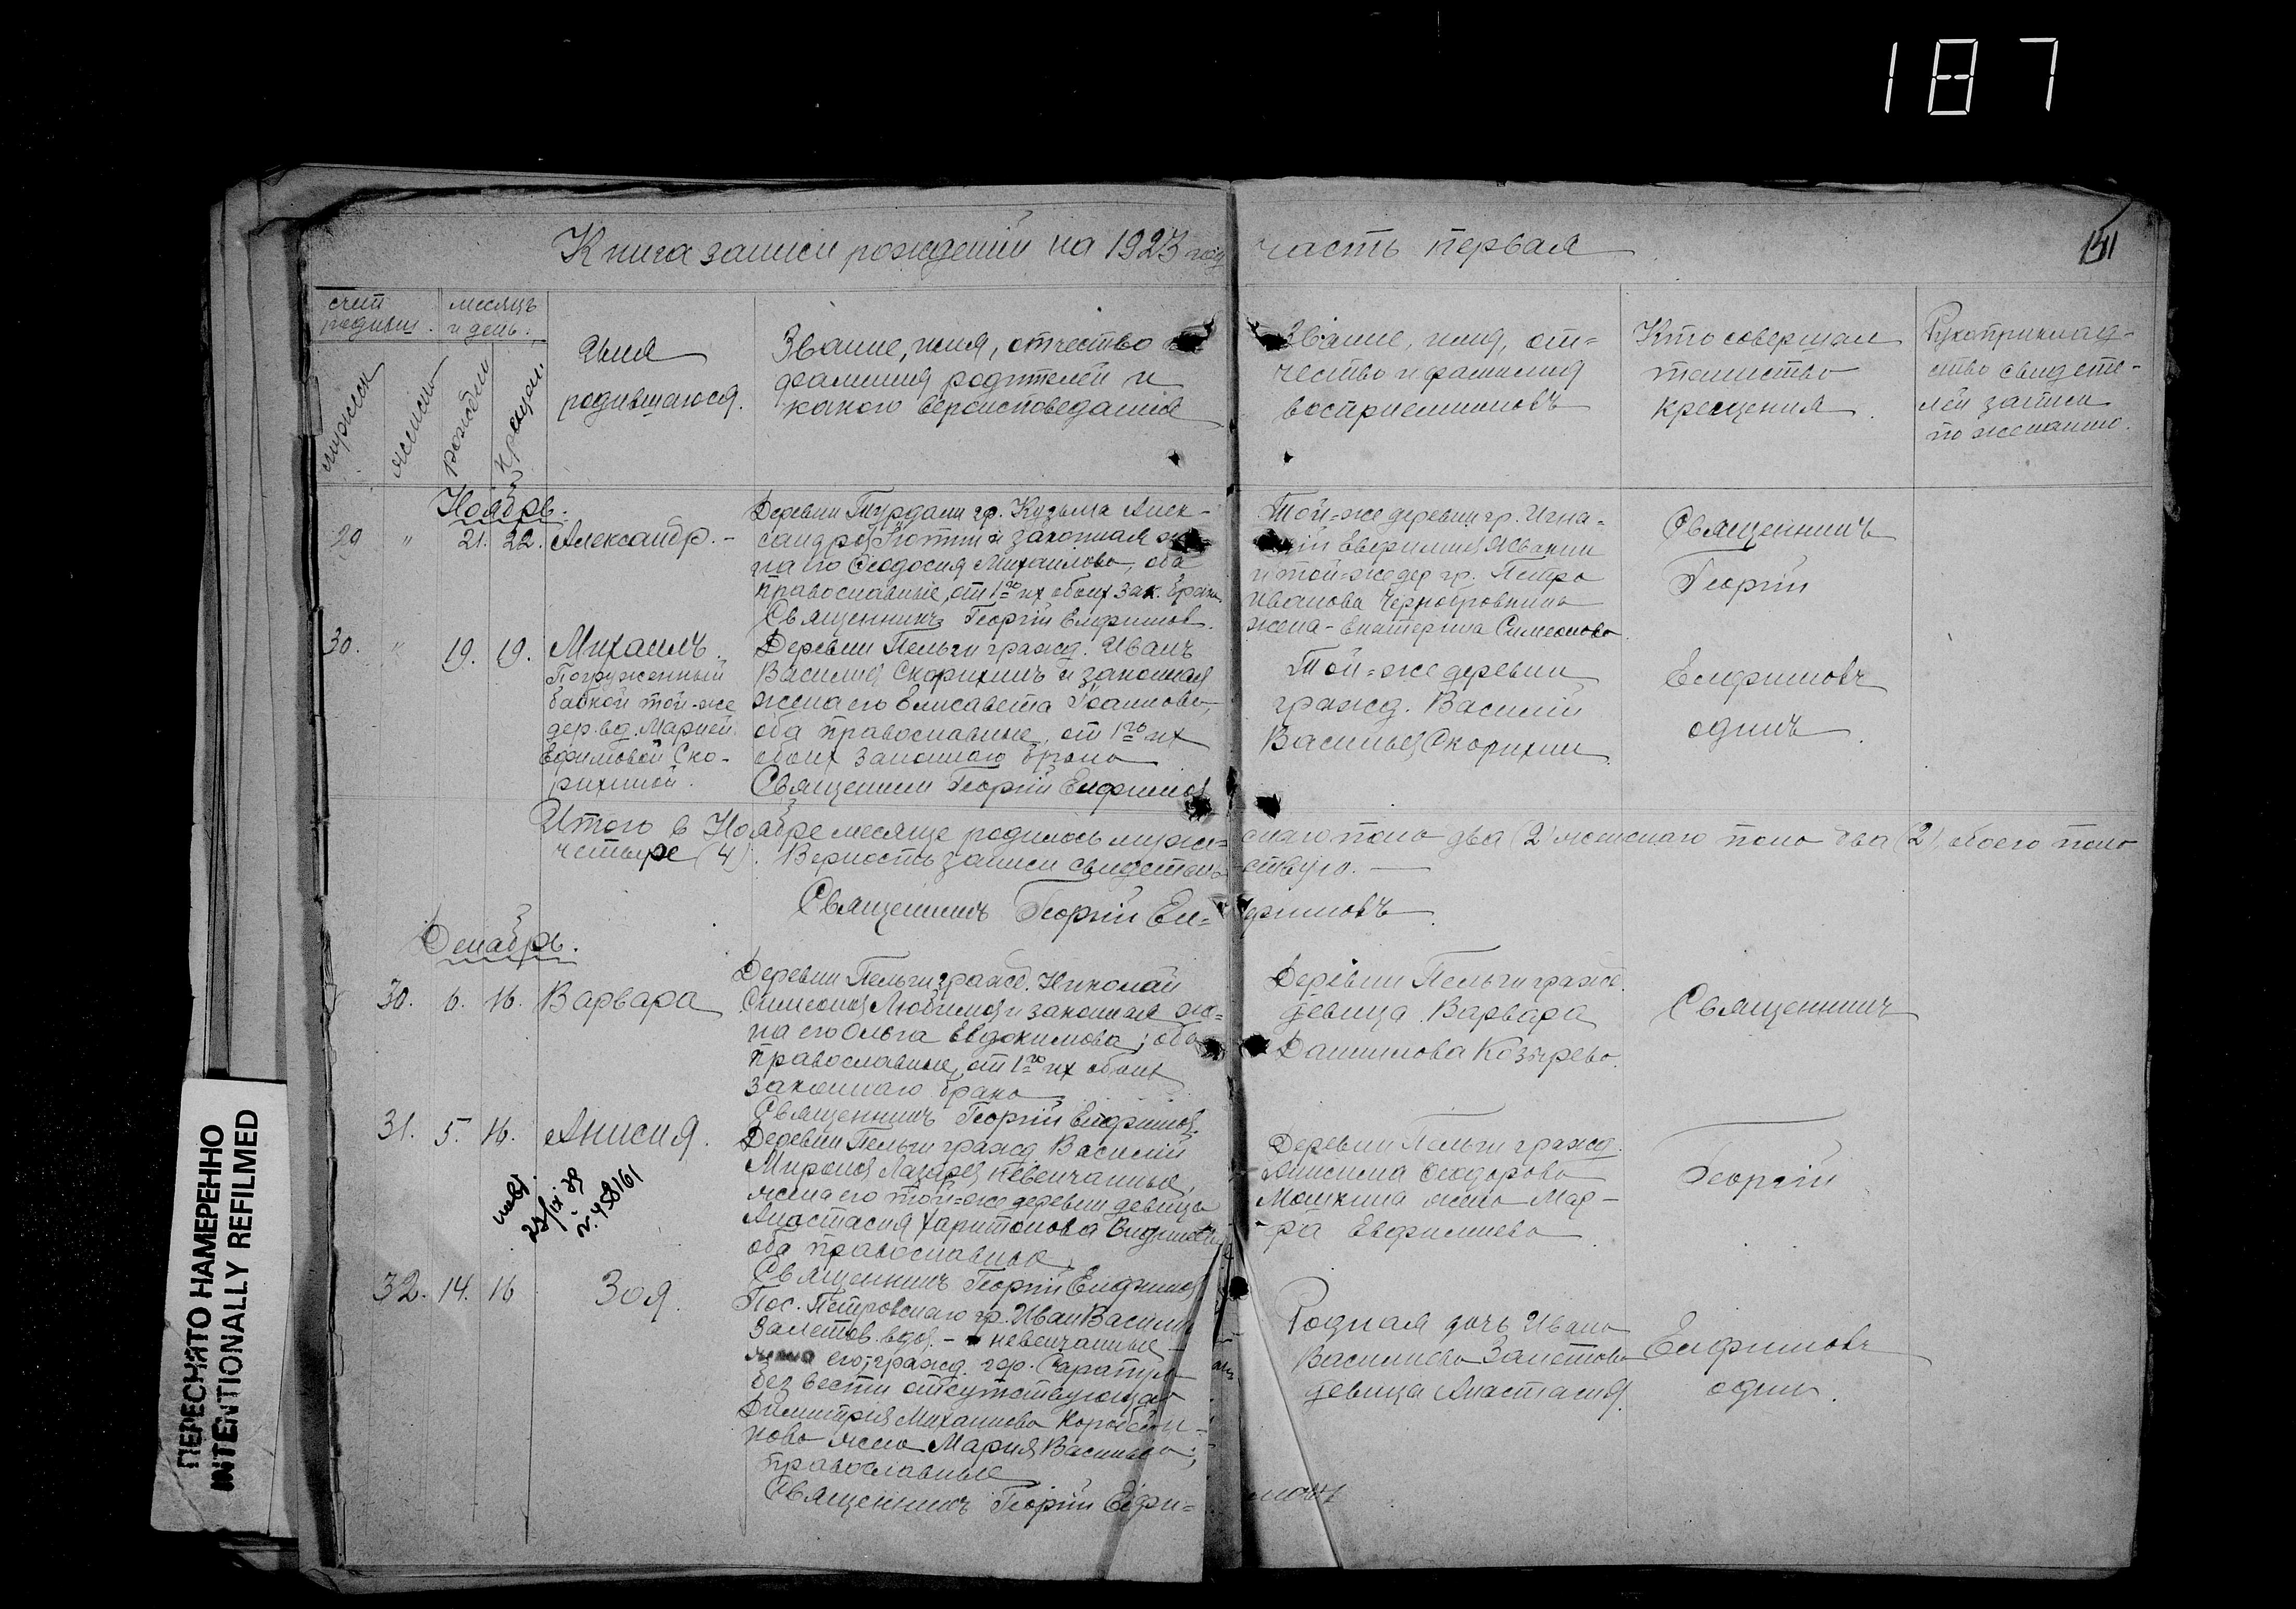 187
Книга записи рожденiй на 1923 год часть первая
151
счет родивш.
месяцъ и день.
мужеска
женска
рожден.
крещен.
Имя
родившагося.
Званiе, имя, отчество и
фамилiя родителей и
какого вероисповеданiя
Званiе, имя, от=
чество и фамилiя
восприемниковъ
Кто совершал
таинство
крещенiя.
Рукоприклад-
ство свидете-
лей записи
по желанiю.
Ноябрь.
29 " 21. 22. Александр. -
Деревни гр. Кузьма Алек-
сандров и законная же=
на его Феодосiя Михайлова, оба
православные, от 1го их обоих зак. брака.
Священникъ Георгiй Елфимов.
Той=же деревни гр. Игна=
тiй Евфимiев
и той=же дер. гр. Петра
Иванова
жена - Екатерина Симеонова.
Священникъ
Георгiй
30. " 19. 19. Михаилъ.
Погруженный
бабкой той-же
дер. вд. Марiей
Ефимовой Ско-
рихиной.
Деревни Пельги гражд. Иванъ
Василiев Скорихинъ и законная
жена его Елисавета Iоаннова,
оба православные, от 1го их
обоих законнаго брака
Священник Георгiй Елфимов
Той=же деревни
гражд. Василiй
Васильев Скорихин.
Елфимовъ
один.
Итого в Ноябре месяце родилось муже=скаго пола два (2) женскаго пола два (2), обоего пола
четыре (4). Верность записи свидетель=ствую. -
Священникъ Георгiй Ел=фимовъ.
Декабрь.
30. 6. 16. Варвара
Деревни Пельги гражд. Николай
Симеонов Любимов и законная же=
на его Ольга Евдокимова; оба
православные, от 1го их обоих
законнаго брака
Священникъ Георгiй Елфимов.
Деревни Пельги гражд.
девица Варвара
Данилова Козырева.
Священникъ
31. 5. 16. Анисия.
23/XI 39
n. 458161
Деревни Пельги гражд. Василiй
Миронов Лазарев невенчанные,
жена его той=же деревни девица
Анастасiя Харитонова
оба православные
Священникъ Георгiй Елфимов
Деревни Пельги гражд.
Анисима Феодорова
Мошкина жена Мар-
фа Евфимiева.
Георгiй
32. 14. 16 Зоя.
Пос. Петровскаго гр. Иван Василiев
Залетов вдов. - невенчанные -
жена его, гражд. гор. Сарапул
без вести отсутствующаго
Димитрiя Михайлова
жена Марiя Васильева;
православные
Священникъ Георгiй Елфи=мовъ
Родная дочь Ивана
Василиева Залетова
девица Анастасiя.
Елфимовъ
один.
ПЕРЕСНЯТО НАМЕРЕННО
INTENTIONALLY REFILMED